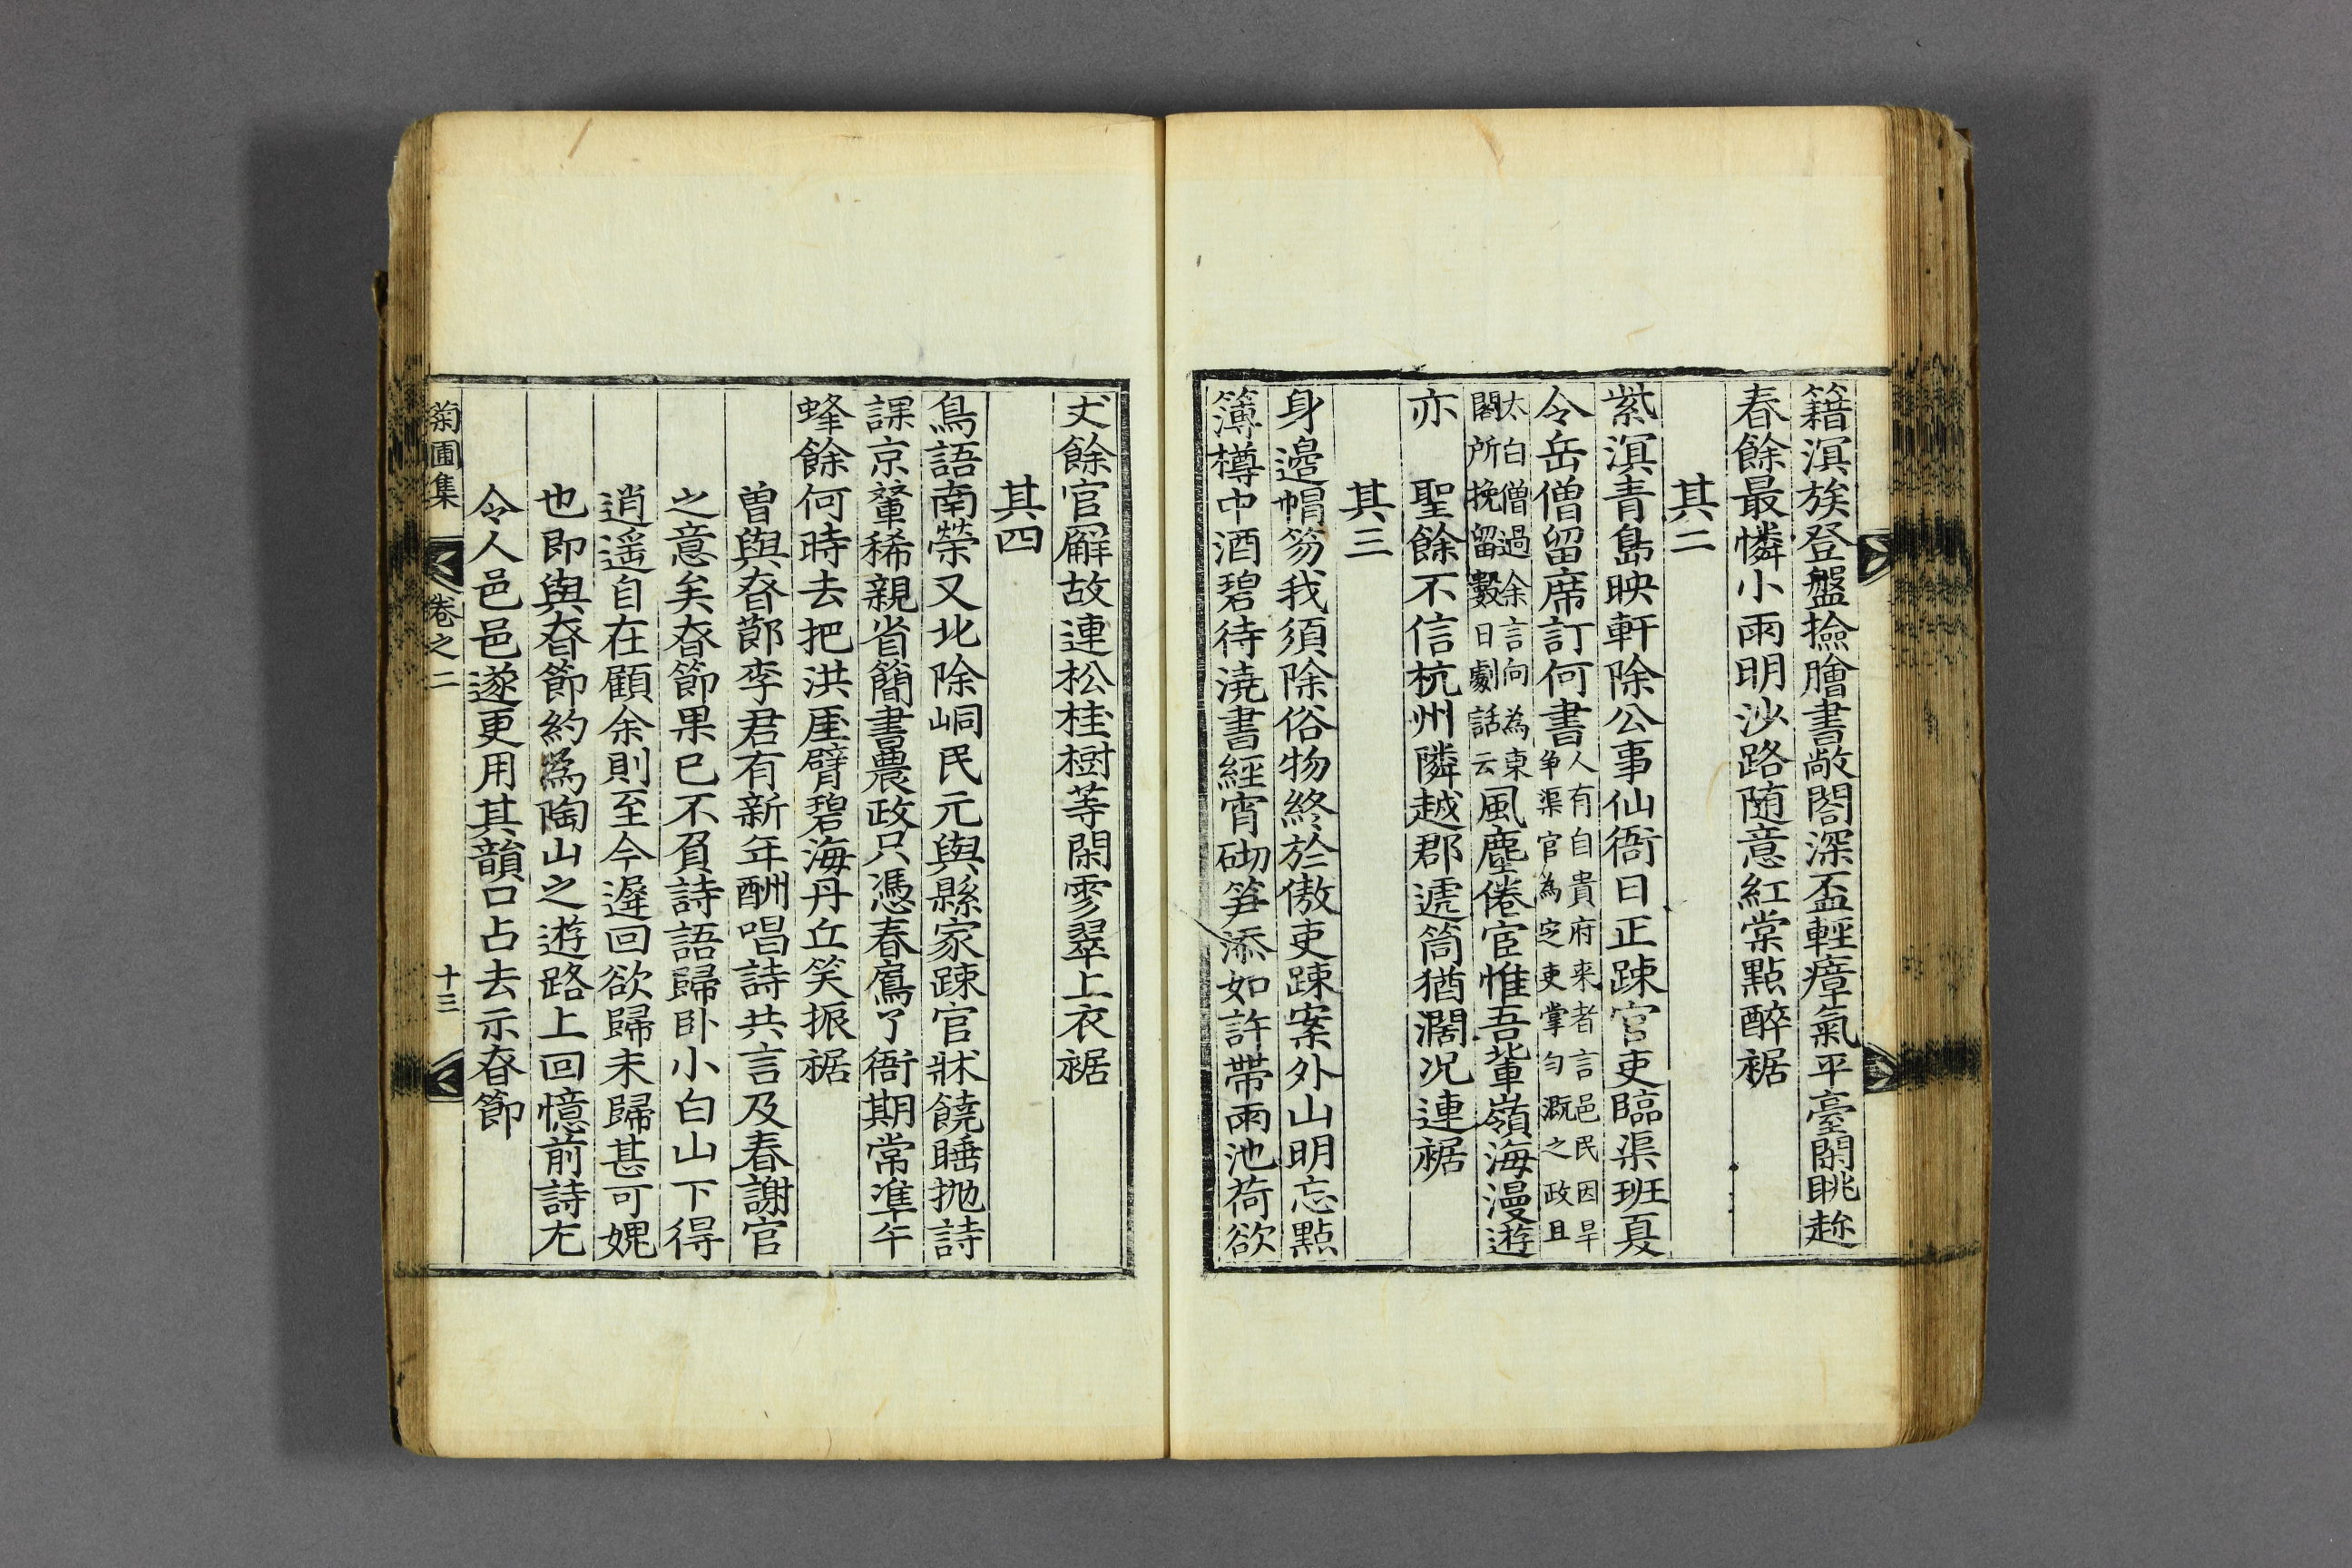 籍溟族登盤撿膾書敞閤深盃輕瘴氣平臺閑眺趂
春餘最憐小雨明沙路随意紅棠點醉裾
其二
紫溟青島映軒除公事仙衙日正踈官吏臨渠班夏
令岳僧留席訂何書人有自貴府来者言邑民因旱争渠官為定吏掌勻溉之政且
太白僧過余言向為東閣所挽留數日劇話云風塵倦宦惟吾輩嶺海漫遊
亦聖餘不信杭州隣越郡遞筒猶濶况連裾
其三
身邉帽笏我須除俗物終於傲吏踈案外山明忘點
簿樽中酒碧待澆書經宵砌笋添如許帶雨池荷欲
丈餘官廨故連松桂樹等閑雱翠上衣裾
其四
鳥語南榮又北除峒民元與縣家踈官牀饒睡抛詩
課京輦稀親省簡書農政只憑春鳸了衙期常准午
蜂餘何時去把洪厓臂碧海丹丘笑振裾
曽與春節李君有新年酬唱詩共言及春謝官
之意矣春節果已不負詩語歸卧小白山下得
逍遥自在顧余則至今遲回欲歸未歸甚可媿
也即與春節約爲陶山之遊路上回憶前詩尤
令人邑邑遂更用其韻口占去示春節
菊圃集 卷之二 十三